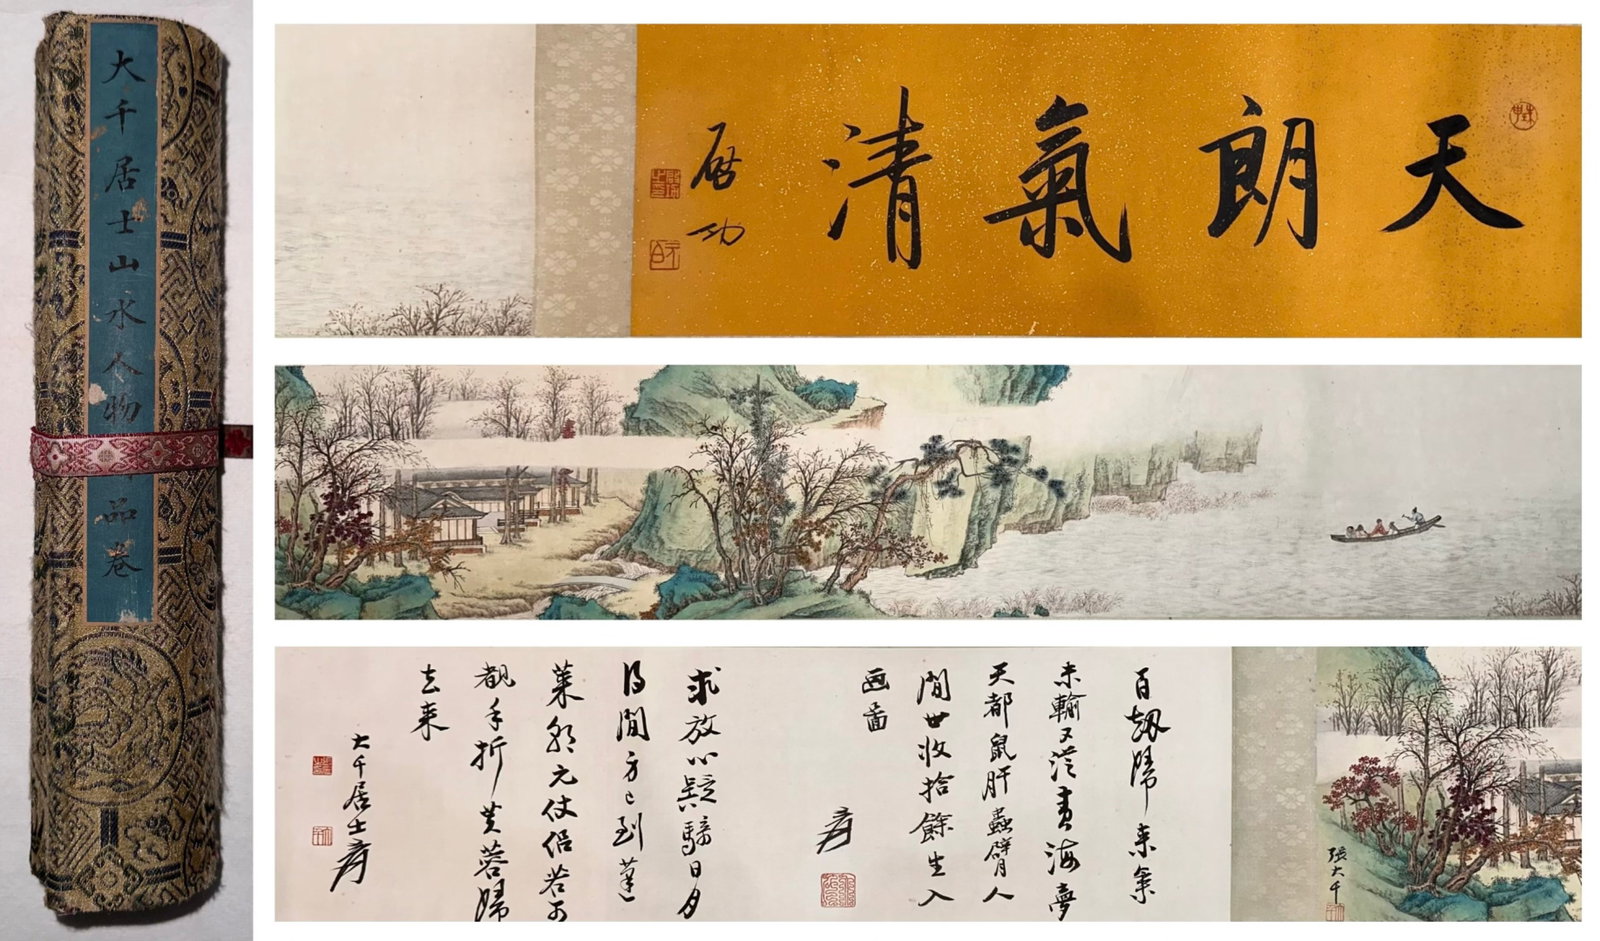 大千居士山水人物
品卷
天朗氣清
启功
張大千
百劫歸来氣
未輸又從青海夢
天都鼠肝蟲臂人
間世收拾餘生入
画啚
爰
求放心 騎日月
得閒方 到蓬
萊 元 侣若可
手折芙蓉歸
去来
大千居士爰